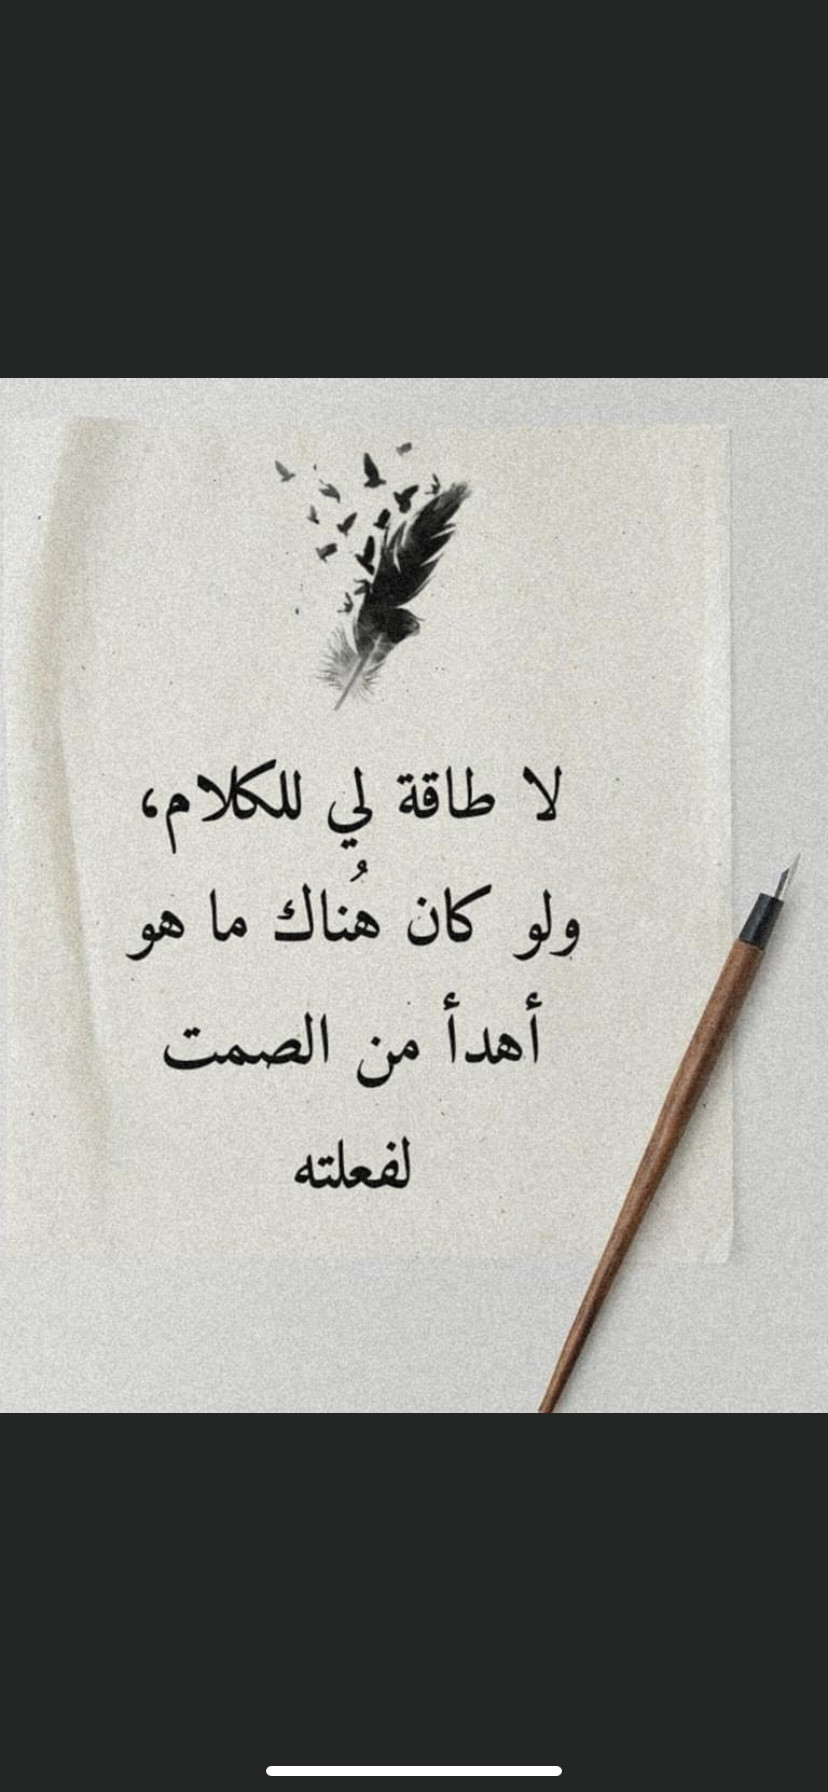 لا طاقة لي للكلام،
ولو كان هُناك ما هو
أهدأ من الصمت
لفعلته